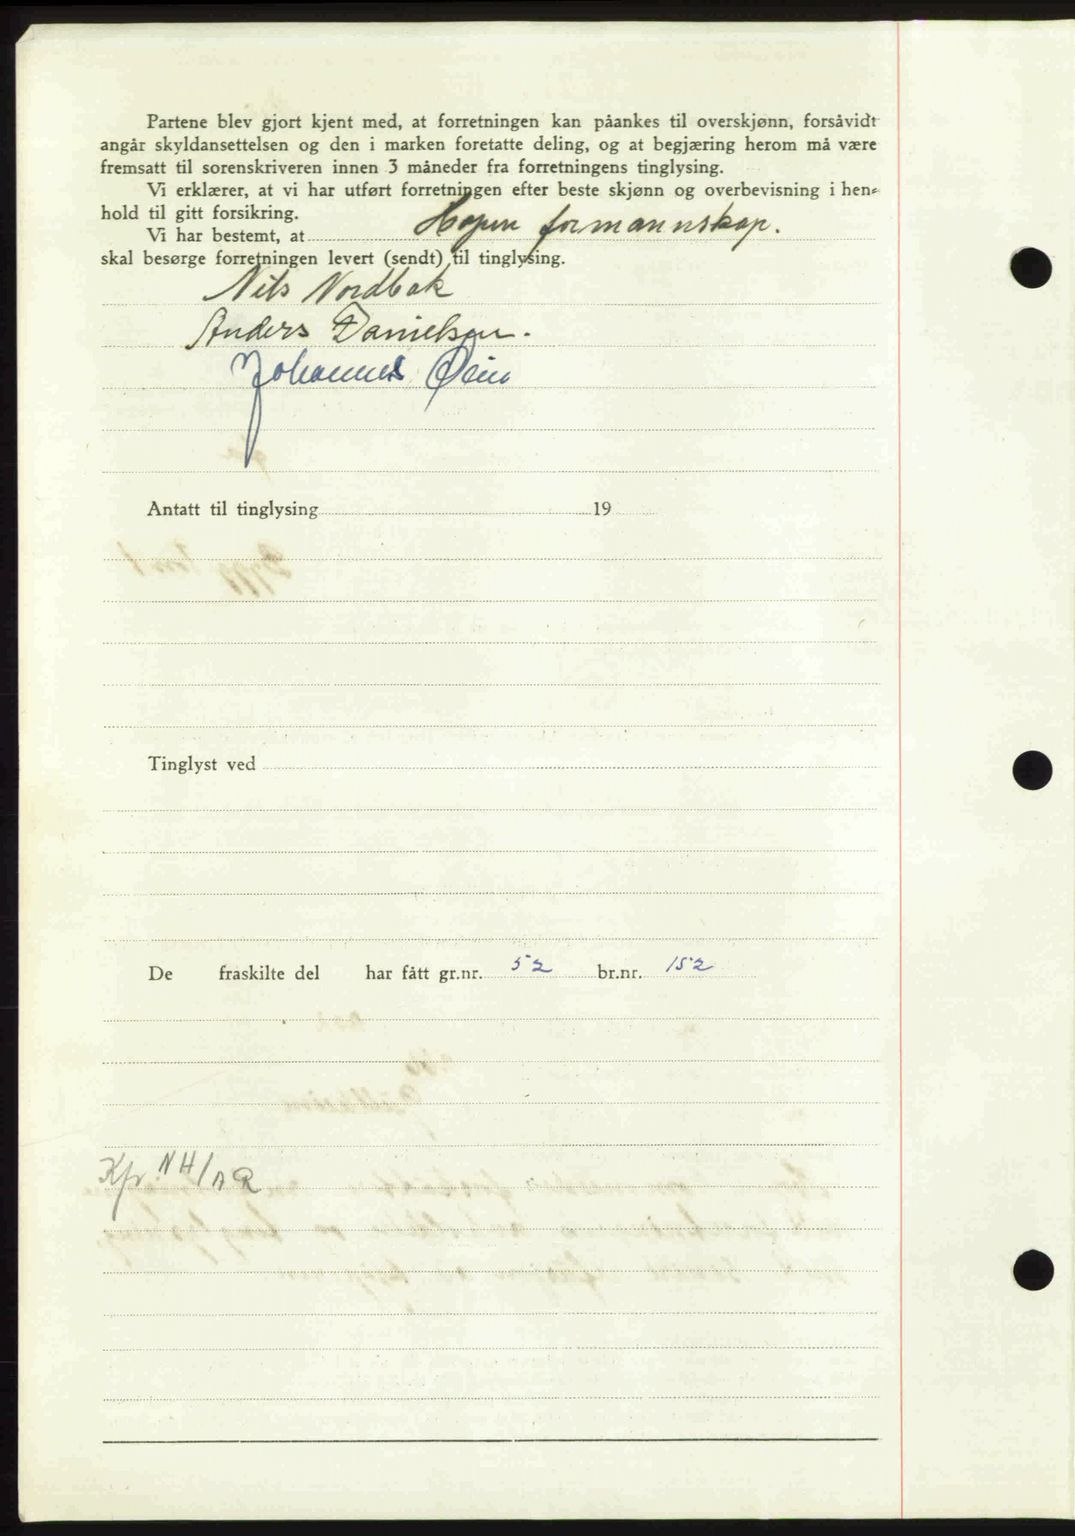 Partene blev gjort kjent med, at forretningen kan påankes til overskjønn, forsåvidt
angår skyldansettelsen og den i marken foretatte deling, og at begjæring herom må være
fremsatt til sorenskriveren innen 3 måneder fra forretningens tinglysing.
Vi erklærer, at vi har utført forretningen efter beste skjønn og overbevisning i hen-
hold til gitt forsikring.
Vi har bestemt, at Hopen formannskap.
skal besørge forretningen levert (sendt) til tinglysing.
Nils Nordbak
Anders Danielsen.
Johannes
Antatt til tinglysing 19
Tinglyst ved
De fraskilte del har fått gr.nr. 52 br.nr. 152
Kfr. NH/AR